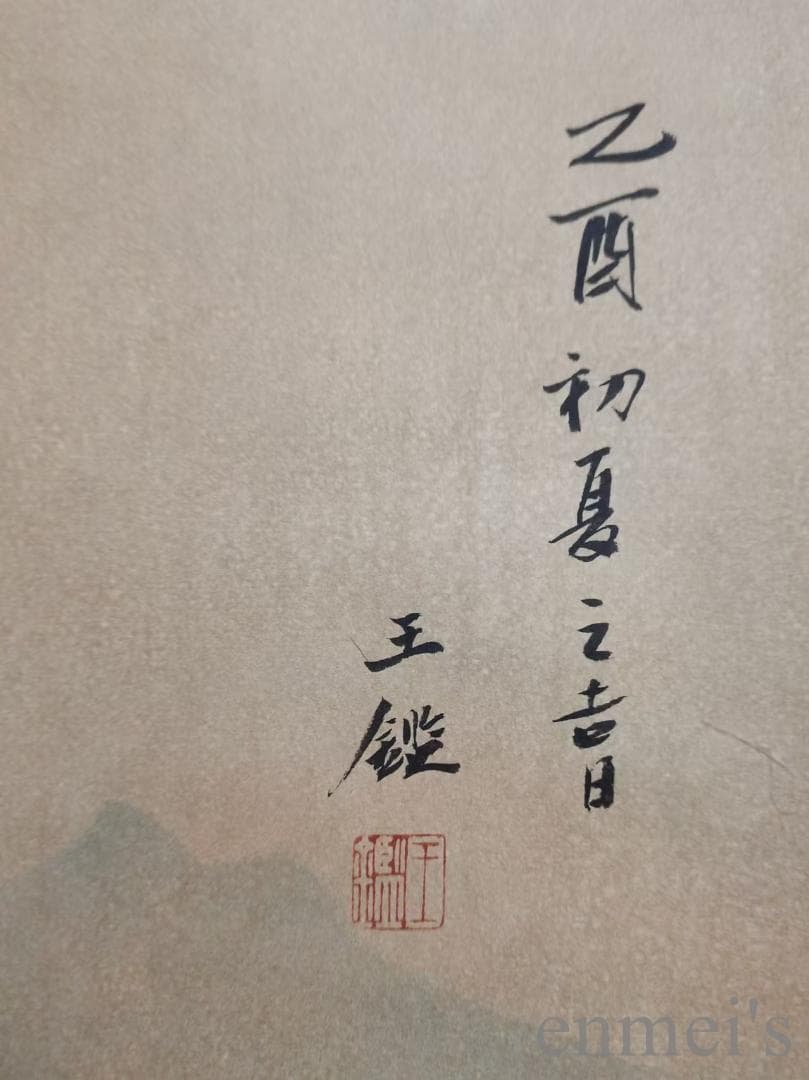 乙酉初夏之吉日
王鑑
王鑑
enmei's